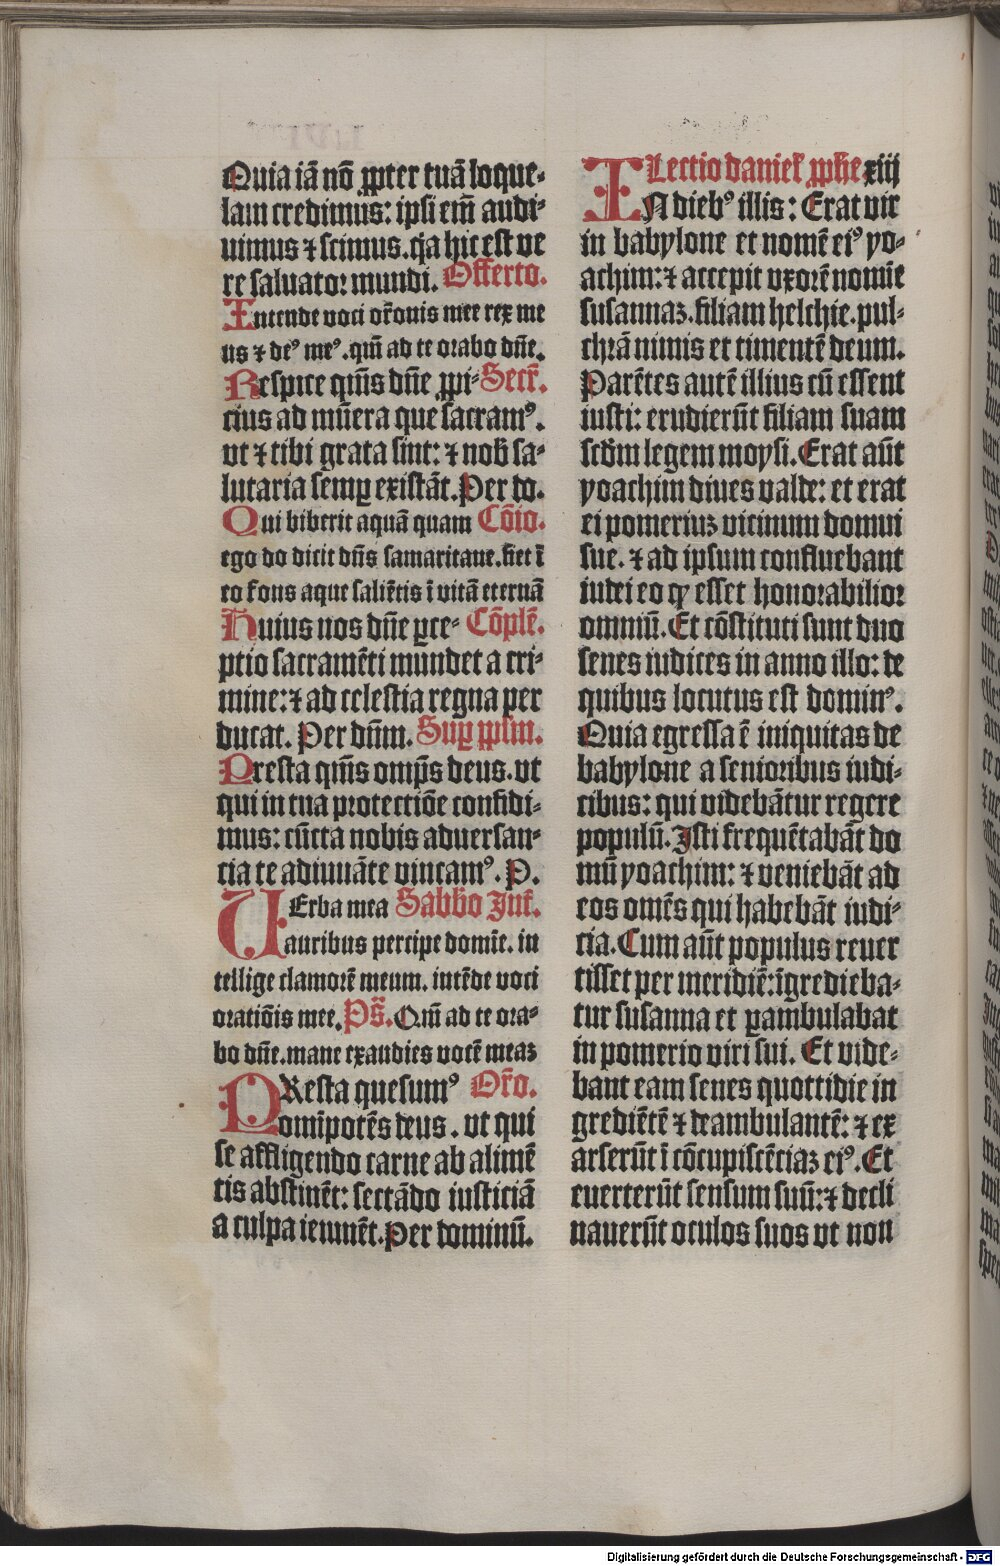 Quia iā nō ꝓpter tuā loque-
lam credimus: ipsi em̄ audi-
uimus ⁊ scimus. q̇a hic est ve
re saluator mundi. Offerto.
Intende voci or̄onis mee rex me
us ⁊ deꝰ meꝰ. qm̄ ad te orabo dn̄e.
Respice qm̄s dn̄e ꝓpi- Secr̄.
cius ad mūera que sacramꝰ.
vt ⁊ tibi grata sint: ⁊ nob̄ sa-
lutaria semꝑ existāt. Per do.
Qui biberit aquā quam Cōio.
ego do dicit dn̄s samaritane. fiet ī
eo fons aque saliētis ī vitā eternā
Huius nos dn̄e ꝑce- Cōplē.
ptio sacramēti mundet a cri-
mine: ⁊ ad celestia regna per
ducat. Per dn̄m. Suꝑ ꝓplm̄.
Presta qm̄s omp̄s deus. vt
qui in tua protectiōe confidi-
mus: cūcta nobis aduersan-
cia te adiuuāte vincamꝰ. P.
VErba mea Sabbo Int̄.
auribus percipe domīe. in
tellige clamorē meum. intēde voci
oratiōis mee. Ps̄. Qm̄ ad te ora-
bo dn̄e. mane exaudies vocē meaꝫ
PResta quesumꝰ Or̄o.
omīpotēs deus. vt qui
se affligendo carne ab alimē
tis abstinēt: sectādo iusticiā
a culpa ieiunēt. Per dominū.
Lectio daniel̄ ꝓphe xiij
IN diebꝰ illis: Erat vir
in babylone et nomē eiꝰ yo-
achim: ⁊ accepit vxorē nomīe
susannaꝫ. filiam helchie. pul-
chrā nimis et timentē deum.
Parētes autē illius cū essent
iusti: erudierūt filiam suam
scdm̄ legem moysi. Erat aūt
yoachim diues valde: et erat
ei pomeriuꝫ vicinum domui
sue. ⁊ ad ipsum confluebant
iudei eo ꝙ esset honorabilior
omniū. Et cōstituti sunt duo
senes iudices in anno illo: de
quibus locutus est dominꝰ.
Quia egressa ē iniquitas de
babylone a senioribus iudi-
cibus: qui videbātur regere
populū. Isti frequētabāt do
mū yoachim: ⁊ veniebāt ad
eos omēs qui habebāt iudi-
cia. Cum aūt populus reuer
tisset per meridiē: īgredieba-
tur susanna et ꝑambulabat
in pomerio viri sui. Et vide-
bant eam senes quottidie in
grediētē ⁊ deambulantē: ⁊ ex
arserūt ī cōcupiscētiaꝫ eiꝰ. Et
euerterūt sensum suū: ⁊ decli
nauerūt oculos suos vt non
Digitalisierung gefördert durch die Deutsche Forschungsgemeinschaft - DFG